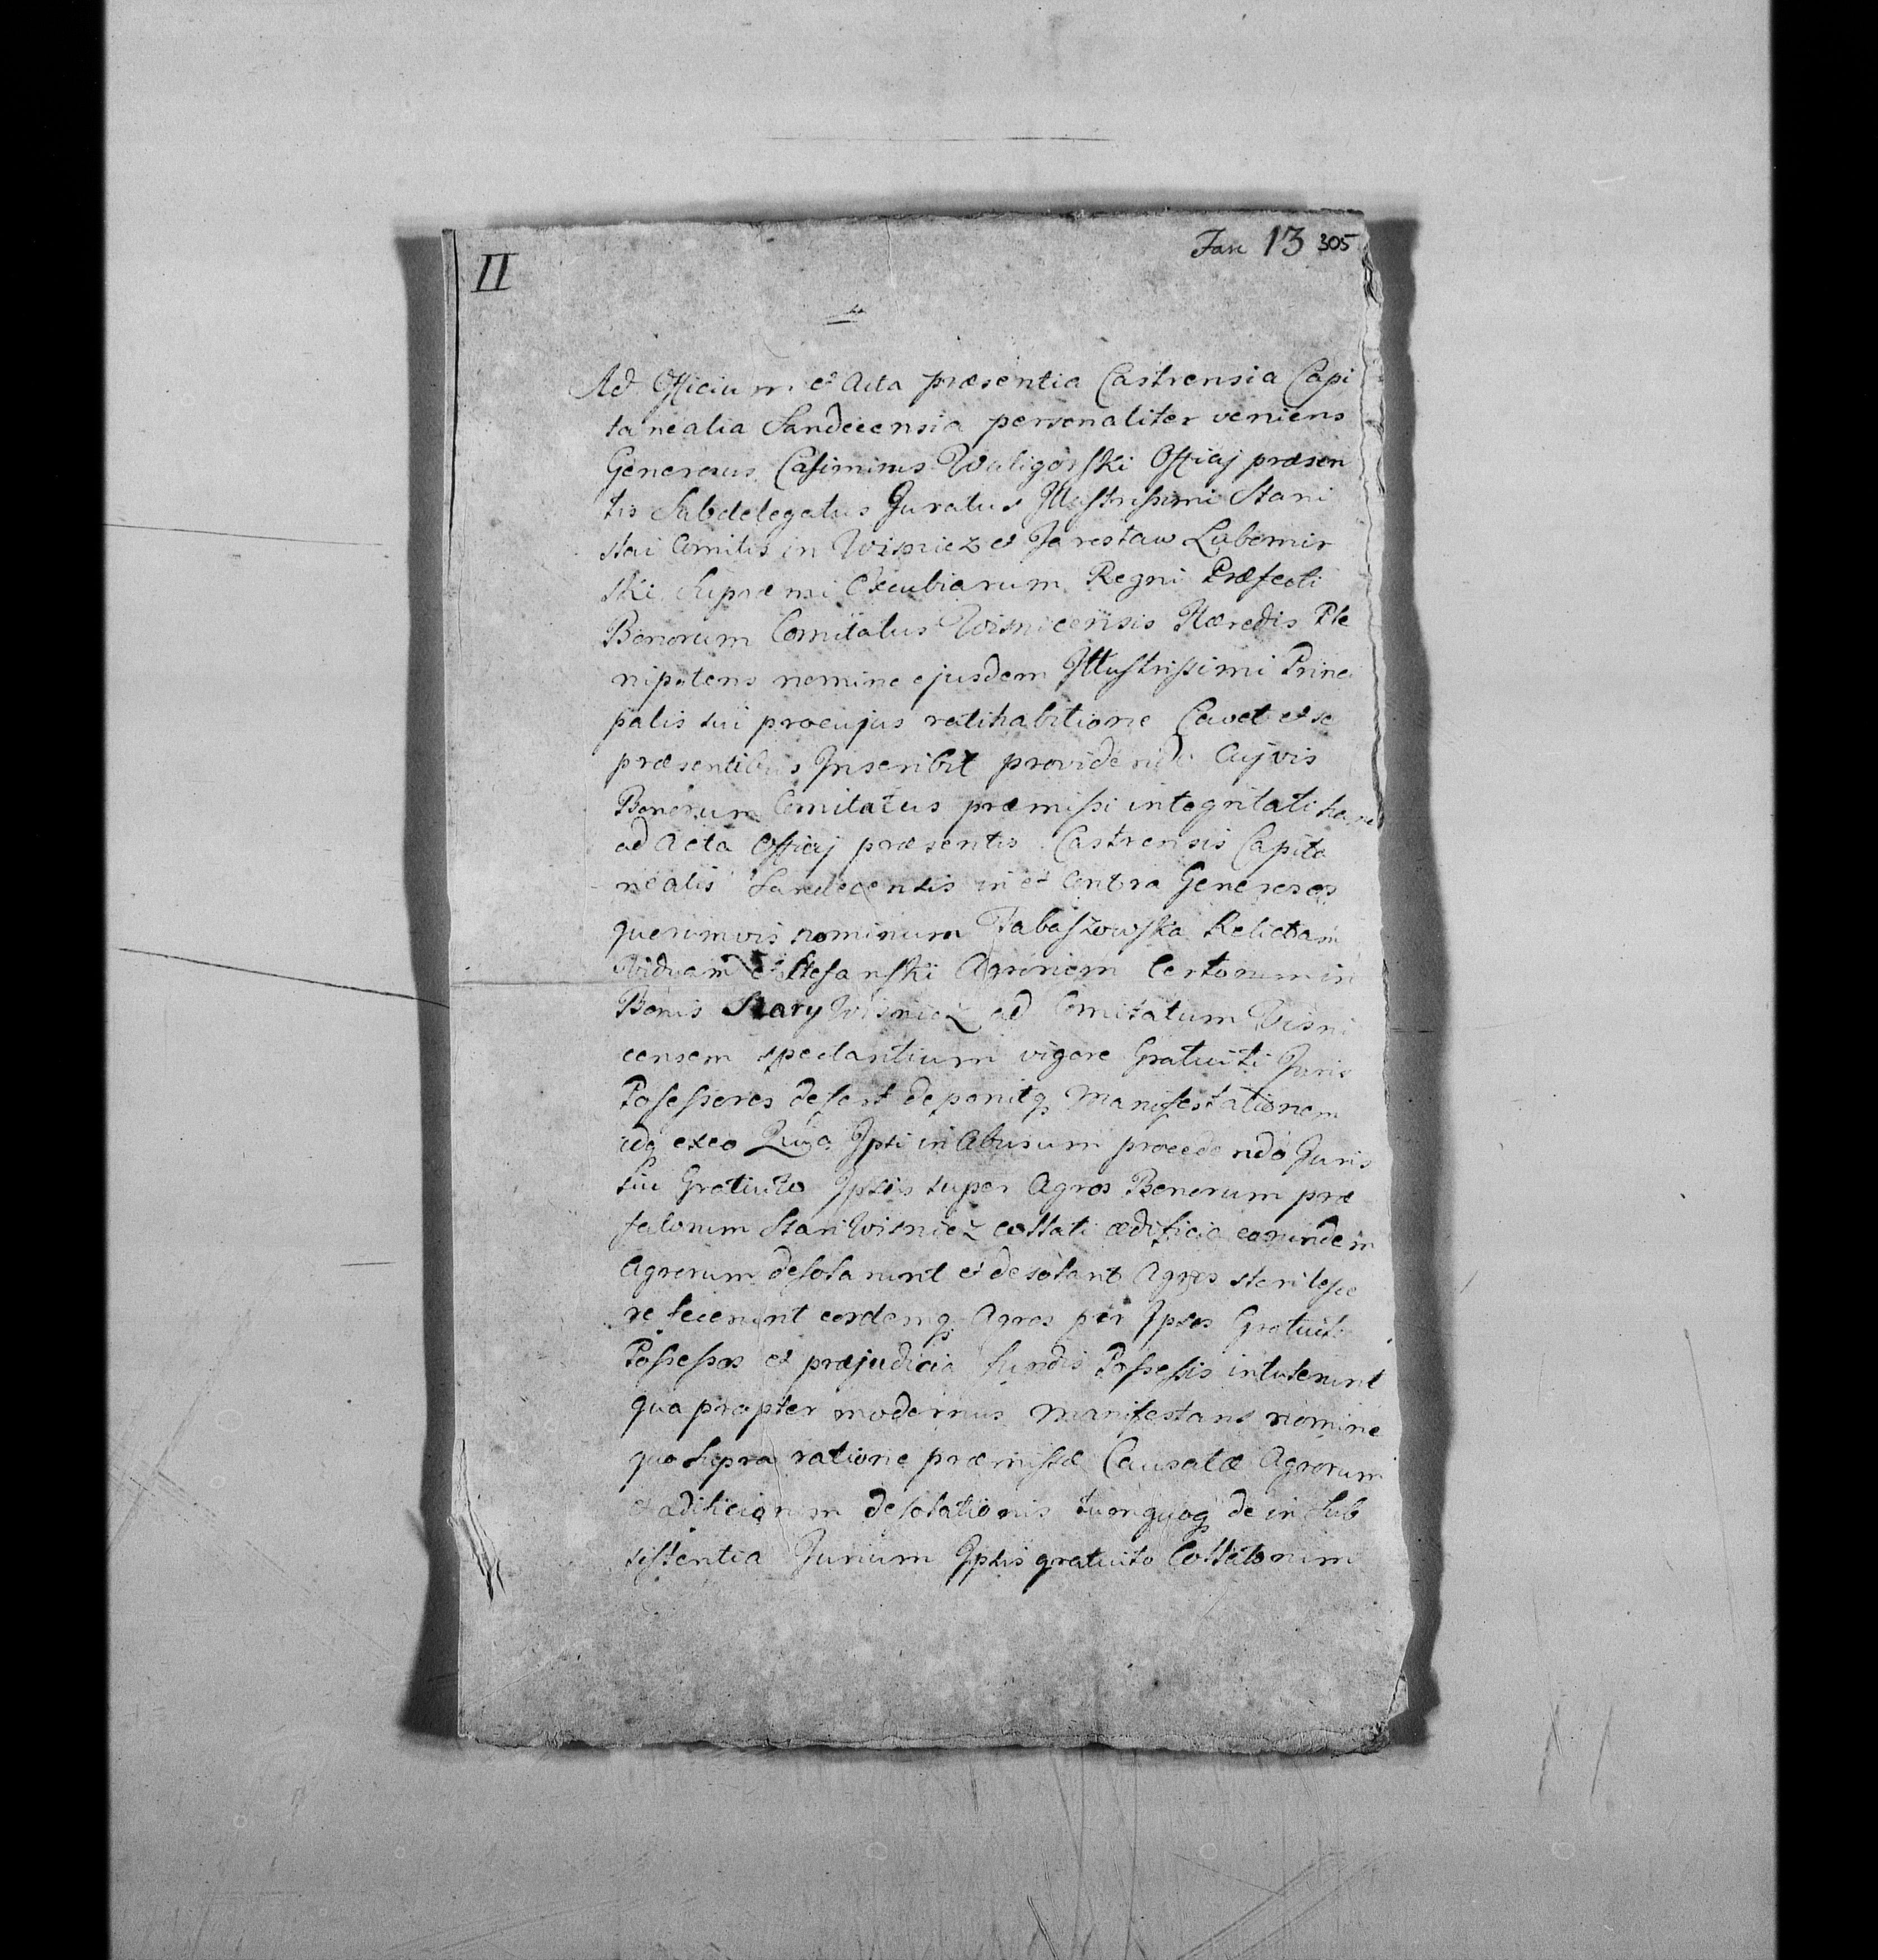 II
Fasc 13 305
Ad Officium et Acta præsentia Castrensia Capi
tanealia Sandecensia personaliter veniens
Generosus Casimirus Waligorski Officij præsen
tis Subdelegatus Juratus Illustrissimi Stani
slai Comitis in Wisnicz et Jaroslaw Lubomir
ski Supræmi Excubiarum Regni Præfecti
Bonorum Comitatus Wisnicensis Hæredis Ple
nipotens nomine ejusdem Illustrissimi Princi
palis sui pro cujus ratihabitione Cavet et se
præsentibus Inscribit providendo Cujvis
Bonorum Comitatus præmissi integritati hanc
ad Acta Officij præsentis Castrensis Capita
nealis Sandecensis in et Contra Generosos
quorumvis nominum Tabaszowska Relictam
Viduam et Stefanski Agrorum Certorum in
Bonis Stary Wisnicz ad Comitatum Visni
censem spectantium vigore Gratuiti Juris
Possessores defert deponitq Manifestationem
idq exeo Quia Ipsi in Abusum procedendo Juris
sui Gratuito Ipsis super Agros Bonorum præ
fatorum Stari Wisnicz Collati ædificia eorundem
Agrorum desolarunt et desolant Agros sterilesce
re fecerunt eosdemq Agros per Ipsos Gratuito
Possessos et præjudicia fundis Possessis intulerunt
quapropter modernus Manifestans nomine
quo Supra ratione præmissæ Causatæ Agrorum
et ædificiorum desolationis tumquoq de in Sub
sistentia Jurium Ipsis gratuito Collatorum